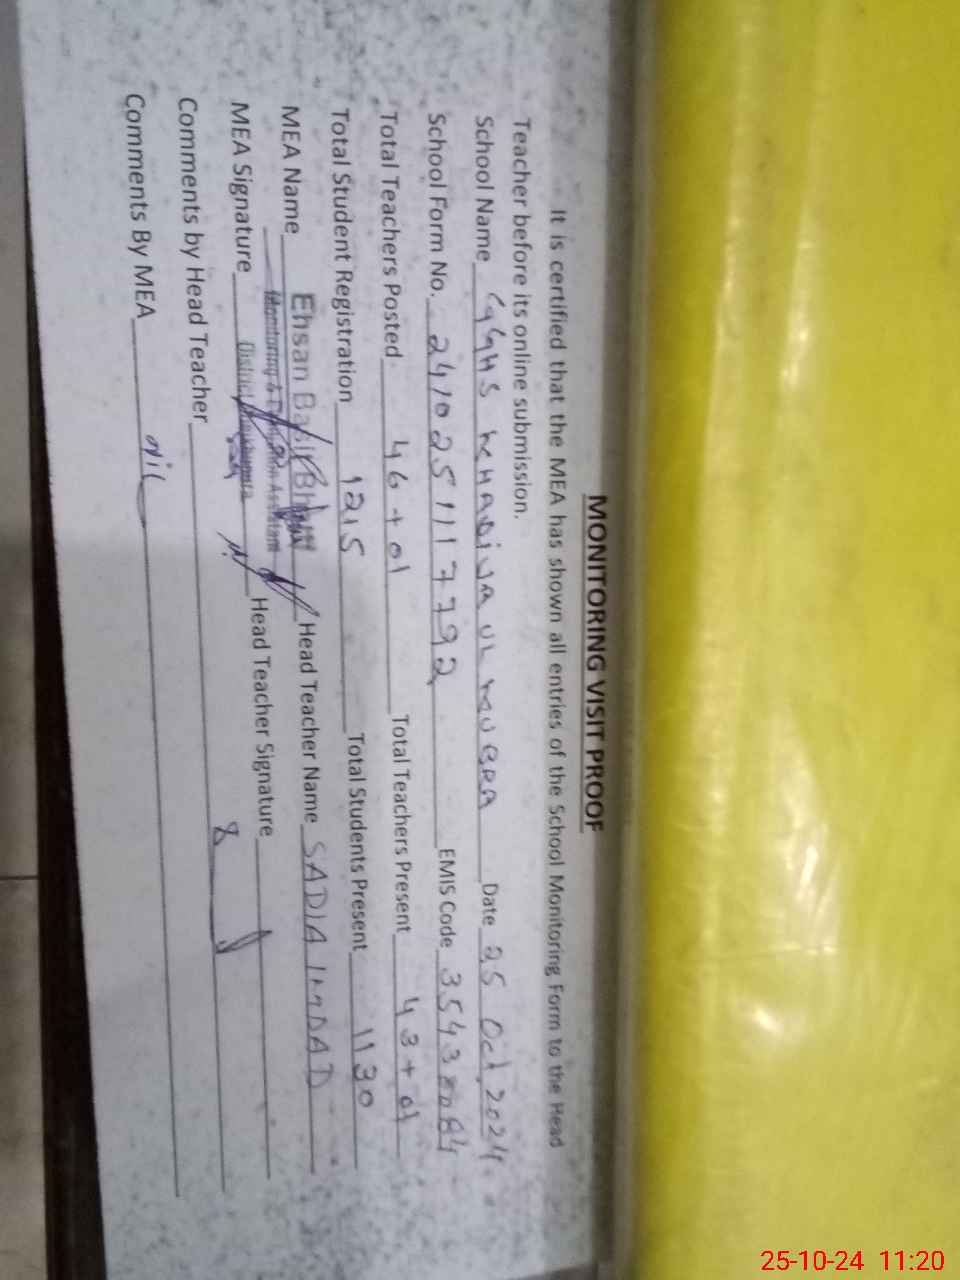 MONITORING VISIT PROOF
It is certified that the MEA has shown all entries of the School Monitoring Form to the Head
Teacher before its online submission.
School Name GGHS KHADIJA UL KUBRA Date 25 Oct, 2024
School Form No. 2410251117792 EMIS Code 35430084
Total Teachers Posted 46 + 01 Total Teachers Present 43 + 01
Total Student Registration 1215 Total Students Present 1130
MEA Name Ehsan Basir Head Teacher Name SADIA IMDAD
Monitoring & Assistant
MEA Signature District Head Teacher Signature
Comments by Head Teacher
Comments By MEA Nil
25-10-24 11:20